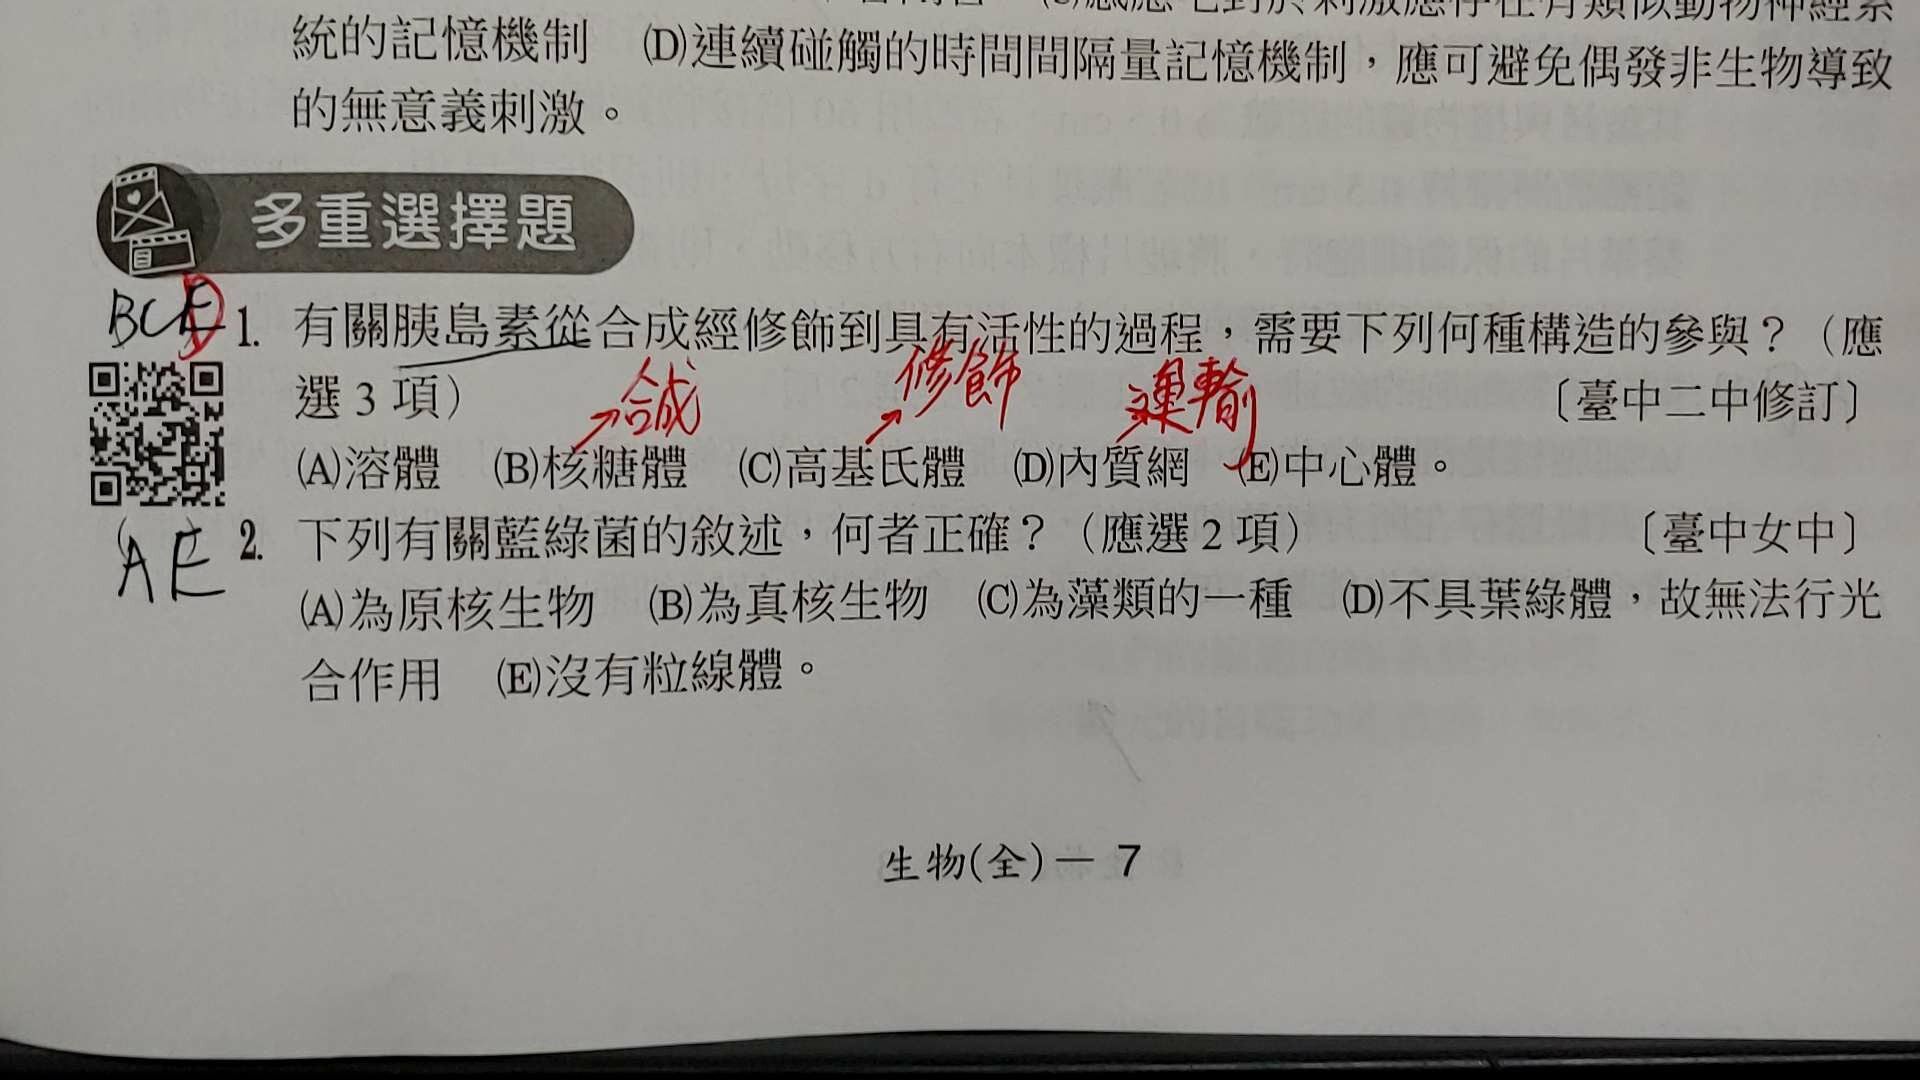 統的記憶機制　(D)連續碰觸的時間間隔量記憶機制，應可避免偶發非生物導致
的無意義刺激。
多重選擇題
BCD 1. 有關胰島素從合成經修飾到具有活性的過程，需要下列何種構造的參與？（應
選 3 項）　〔臺中二中修訂〕
→合成　→修飾　運輸
(A)溶體　(B)核糖體　(C)高基氏體　(D)內質網　(E)中心體。
AE 2. 下列有關藍綠菌的敘述，何者正確？（應選 2 項）　〔臺中女中〕
(A)為原核生物　(B)為真核生物　(C)為藻類的一種　(D)不具葉綠體，故無法行光
合作用　(E)沒有粒線體。
生物(全)－ 7